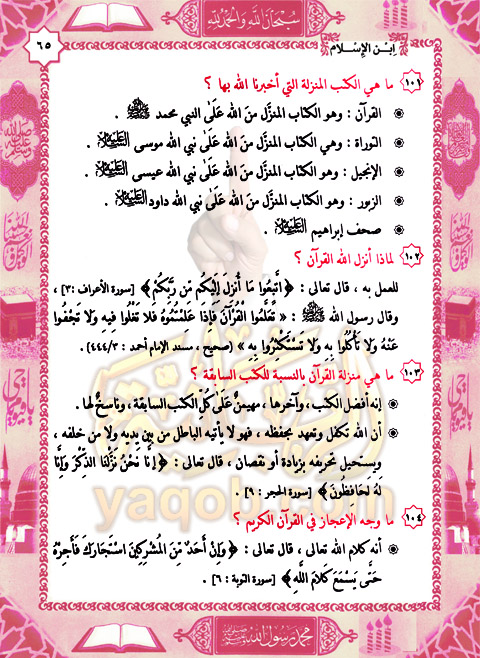 سبحان الله والحمد لله
٦٥
ابن الإسلام
١٠١ ما هي الكتب المنزلة التي أخبرنا الله بها ؟
القرآن : وهو الكتاب المنزَّل منَ الله عَلَىٰ النبي محمد ﷺ .
التوراة : وهي الكتاب المنزَّل منَ الله عَلَىٰ نبي الله موسى عليه السلام .
الإنجيل : وهو الكتاب المنزَّل منَ الله عَلَىٰ نبي الله عيسى عليه السلام .
الزبور : وهو الكتاب المنزَّل منَ الله عَلَىٰ نبي الله داود عليه السلام .
صحف إبراهيم عليه السلام .
١٠٢ لماذا أنزل الله القرآن ؟
للعمل به ، قال تعالى : ﴿ اتَّبِعُوا مَا أُنزِلَ إِلَيْكُم مِّن رَّبِّكُمْ ﴾ [سورة الأعراف :٣] ،
وقال رسول الله ﷺ : « تَعَلَّمُوا الْقُرْآنَ فَإِذَا عَلَّمْتُمُوهُ فَلا تَغْلُوا فِيهِ وَلا تَجْفُوا
عَنْهُ وَلا تَأْكُلُوا بِهِ وَلا تَسْتَكْثِرُوا بِهِ » (صحيح ، مسند الإمام أحمد : ٤٤٤/٣) .
١٠٣ ما هي منزلة القرآن بالنسبة للكتب السابقة ؟
إنه أفضل الكتب ، وآخرها ، مهيمنٌ عَلَىٰ كُلِّ الكتب السابقة ، وناسخٌ لها .
أن الله تكفل وتعهد بحفظه ، فهو لا يأتيه الباطل من بين يديه ولا من خلفه ،
ويستحيل تحريفه بزيادة أو نقصان ، قال تعالى : ﴿ إِنَّا نَحْنُ نَزَّلْنَا الذِّكْرَ وَإِنَّا
لَهُ لَحَافِظُونَ ﴾ [سورة الحجر : ٩] .
١٠٤ ما وجه الإعجاز في القرآن الكريم ؟
أنه كلام الله تعالى ، قال تعالى : ﴿ وَإِنْ أَحَدٌ مِّنَ الْمُشْرِكِينَ اسْتَجَارَكَ فَأَجِرْهُ
حَتَّىٰ يَسْمَعَ كَلَامَ اللَّهِ ﴾ [سورة التوبة : ٦] .
yaqob.com
محمد رسول الله ﷺ